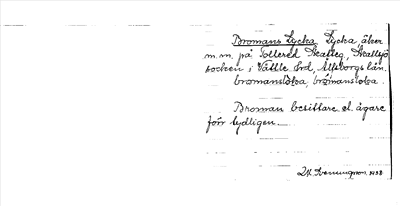 Bromans Lycka Lycka åker
m.m. på Tollered Skalleg, Skallsjö
socken i Vättle hd, Älfsborgs län.
bromanslöka, bromansloka.
Broman besittare el. ägare
förr tydligen.
1938